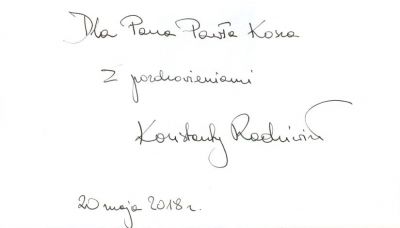 Dla Pana Pawła Kosza
Z pozdrowieniami
Konstanty Radziwiłł
20 maja 2018 r.